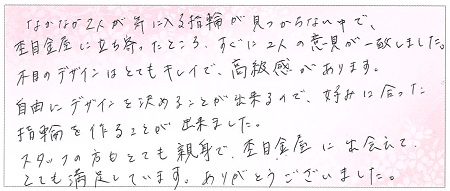 なかなか2人が気に入る指輪が見つからない中で、
杢目金屋に立ち寄ったところ、すぐに2人の意見が一致しました。
木目のデザインはとてもキレイで、高級感があります。
自由にデザインを決めることが出来るので、好みに合った
指輪を作ることが出来ました。
スタッフの方もとても親身で、杢目金屋に出会えて、
とても満足しています。ありがとうございました。